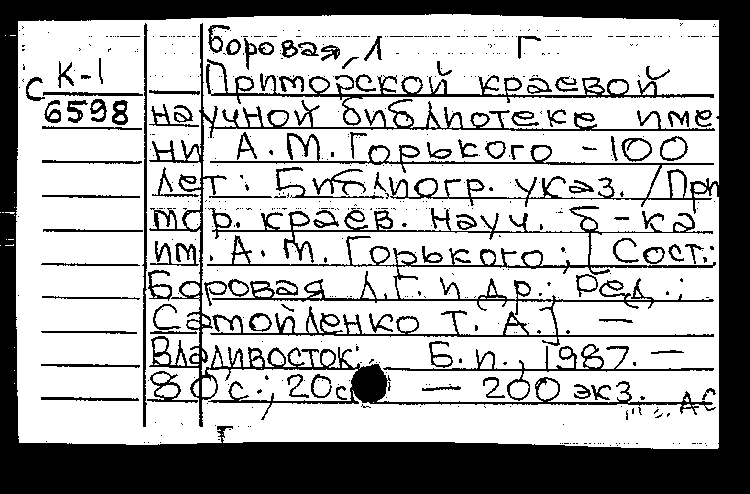 Боровая, Л Г
К-1
С
6598
Приморской краевой
научной библиотеке име-
ни А.М.Горького -100
лет: Библиогр. указ. /При
мор. краев. науч. б-ка
им. А.М. Горького; [Сост.:
Боровая Л.Г. и др.; Ред.:
Самойленко Т. А.]. —
Владивосток: Б.и., 1987. —
80 с.; 20 см — 200 экз.